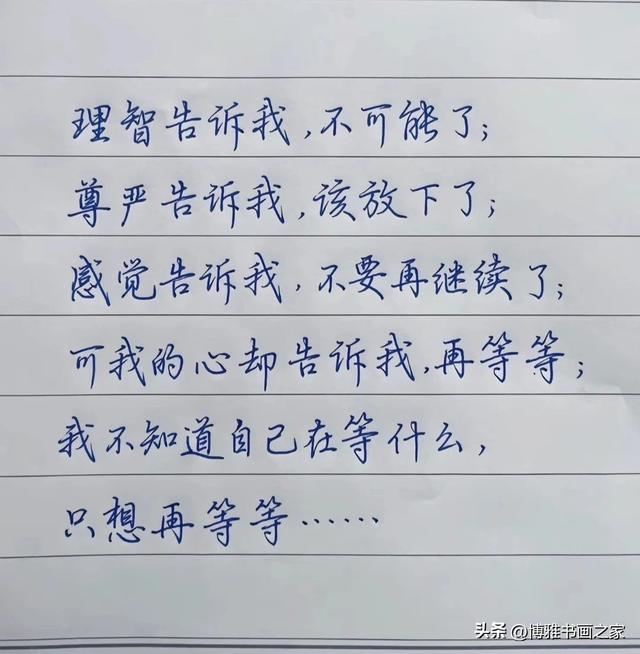 理智告诉我,不可能了;
尊严告诉我,该放下了;
感觉告诉我,不要再继续了;
可我的心却告诉我,再等等;
我不知道自己在等什么,
只想再等等……
头条@博雅书画之家